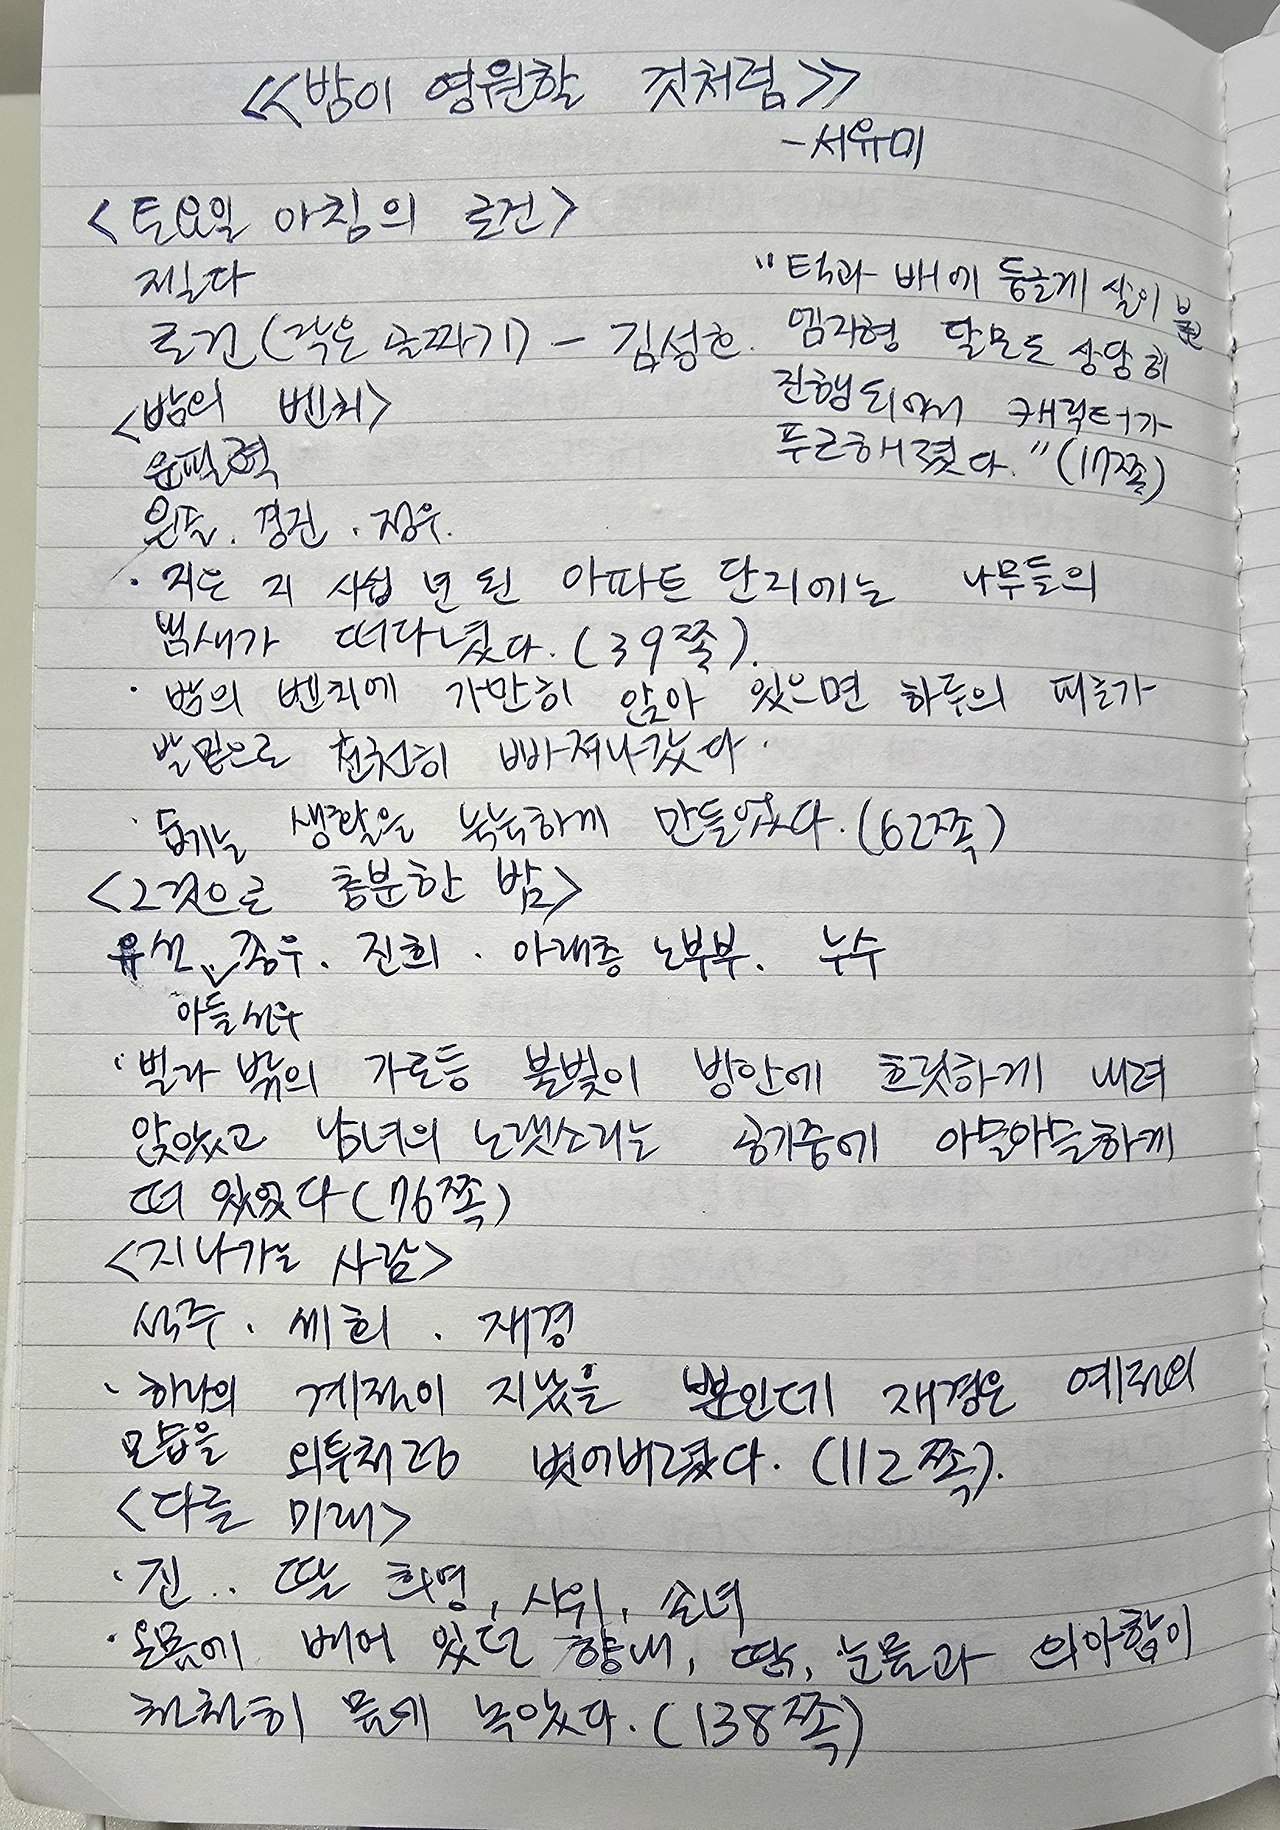 <<밤이 영원할 것처럼>>
-서유미
<토요일 아침의 로건>
제일다
로건(작은 골짜기) - 김성호.
"턱과 배에 둥글게 살이 붙은
엠자형 탈모도 상당히
진행되어서 캐릭터가
푸근해졌다." (17쪽)
<밤의 벤치>
윤필
은들. 경진. 정우.
· 지은 지 사십 년 된 아파트 단지에는 나무들의
냄새가 떠다녔다. (39쪽).
· 밤의 벤치에 가만히 앉아 있으면 하루의 피로가
발밑으로 천천히 빠져나갔다.
· 생활을 눅눅하게 만들었다. (62쪽)
<그것으로 충분한 밤>
유선, 종우. 진희. 아래층 노부부. 누수
아들 선우
· 빌라 밖의 가로등 불빛이 방안에 흐릿하게 내려
앉았고 남녀의 노랫소리는 공기중에 아물아물하게
떠 있었다 (76쪽)
<지나가는 사람>
석주. 세희. 재경
· 하나의 계절이 지났을 뿐인데 재경은 예전의
모습을 외투처럼 벗어버렸다. (112쪽).
<다른 미래>
· 진.. 딸 희영, 사위, 손녀
· 온몸에 베어 있던 향내, 땀, 눈물과 의아함이
천천히 물에 녹았다. (138쪽)